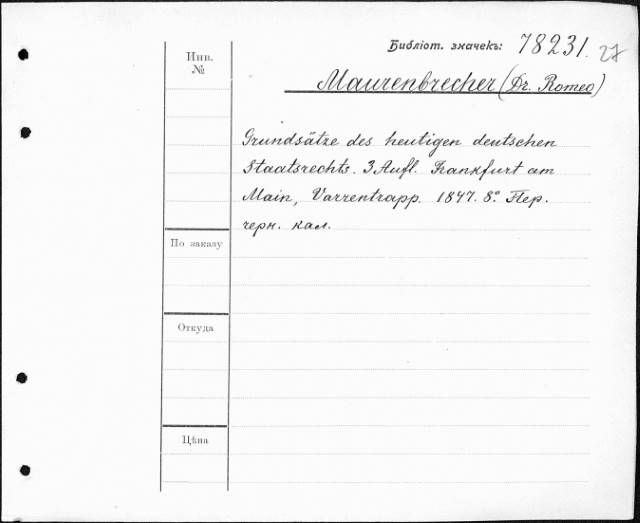 Библіот. значекъ: 78231. 27
Инв.
№
Maurenbrecher (Dr. Romeo)
Grundsätze des heutigen deutschen
Staatsrechts. 3 Aufl. Frankfurt am
Main, Varrentrapp. 1847. 8º Пер.
черн. кал.
По заказу
Откуда
Цѣна